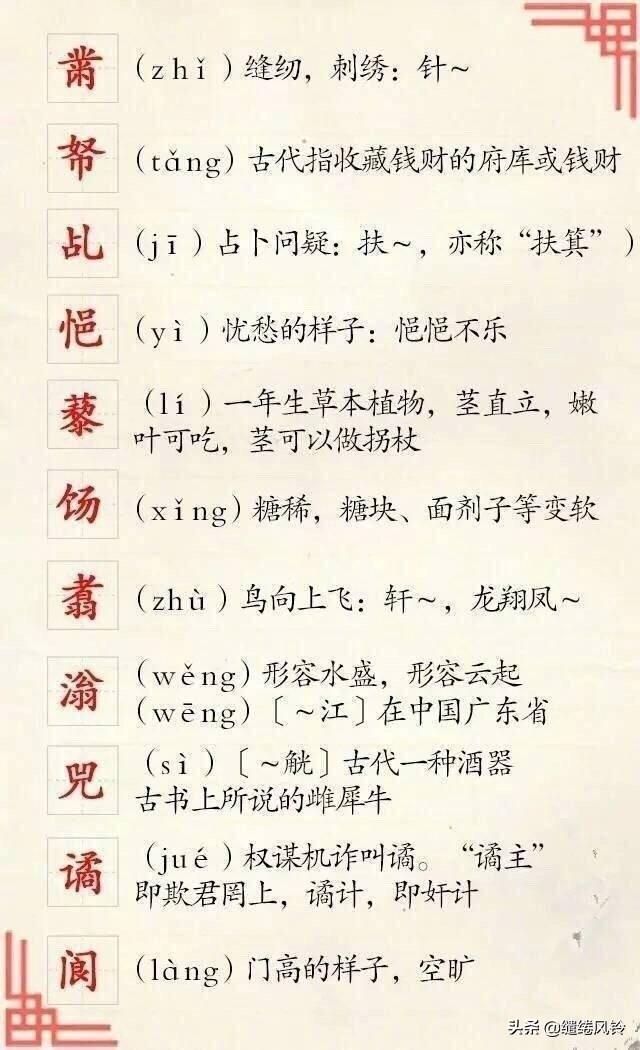 黹 (zhǐ)缝纫，刺绣：针～
帑 (tǎng)古代指收藏钱财的府库或钱财
乩 (jī)占卜问疑：扶～，亦称“扶箕”)
悒 (yì)忧愁的样子：悒悒不乐
藜 (lí)一年生草本植物，茎直立，嫩
叶可吃，茎可以做拐杖
饧 (xíng)糖稀，糖块、面剂子等变软
翥 (zhù)鸟向上飞：轩～，龙翔凤～
滃 (wěng)形容水盛，形容云起
(wēng)〔～江〕在中国广东省
兕 (sì)〔～觥〕古代一种酒器
古书上所说的雌犀牛
谲 (jué)权谋机诈叫谲。“谲主”
即欺君罔上，谲计，即奸计
阆 (làng)门高的样子，空旷
头条 @缱绻风铃